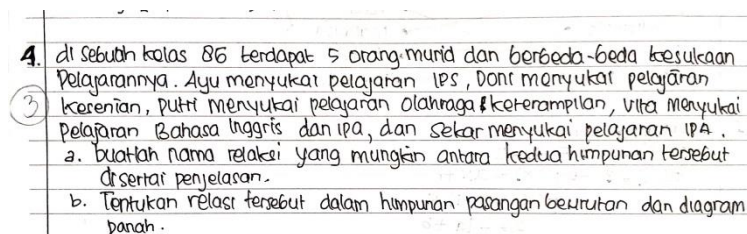 4. di sebuah kelas 8G terdapat 5 orang murid dan berbeda-beda kesukaan
Pelajarannya. Ayu menyukai pelajaran IPS, Doni menyukai pelajaran
3 kesenian, putri menyukai pelajaran olahraga & keterampilan, vita menyukai
pelajaran Bahasa Inggris dan ipa, dan sekar menyukai pelajaran IPA.
a. buatlah nama relaksi yang mungkin antara kedua himpunan tersebut
disertai penjelasan.
b. Tentukan relasi tersebut dalam himpunan pasangan berurutan dan diagram
panah.